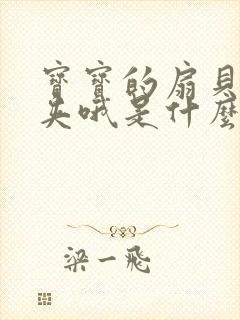 寶寶的扇貝
吳哦是什麼
梁一飛